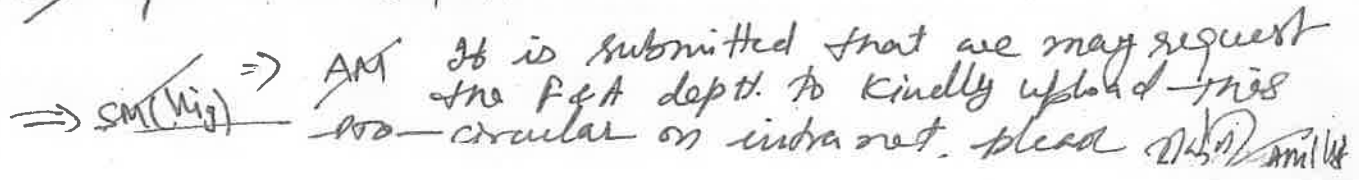 => AM It is submitted that we may request
=> SM(Vig) the F&A deptt. to kindly upload this
circular on intranet. please